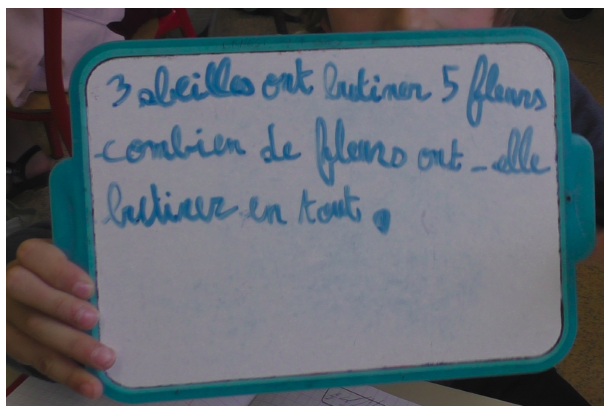 3 abeilles ont butiner 5 fleurs
combien de fleurs ont-elle
butiner en tout.